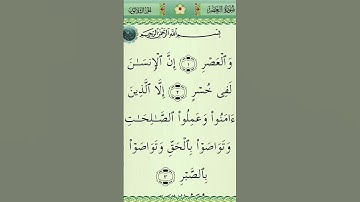 سُورَةُ العَصْرِ الجُزْءُ الثَّلَاثُونَ
بِسْمِ ٱللَّهِ ٱلرَّحْمَٰنِ ٱلرَّحِيمِ
وَٱلْعَصْرِ ١ إِنَّ ٱلْإِنسَـٰنَ
لَفِى خُسْرٍ ٢ إِلَّا ٱلَّذِينَ
ءَامَنُوا۟ وَعَمِلُوا۟ ٱلصَّـٰلِحَـٰتِ
وَتَوَاصَوْا۟ بِٱلْحَقِّ وَتَوَاصَوْا۟
بِٱلصَّبْرِ ٣